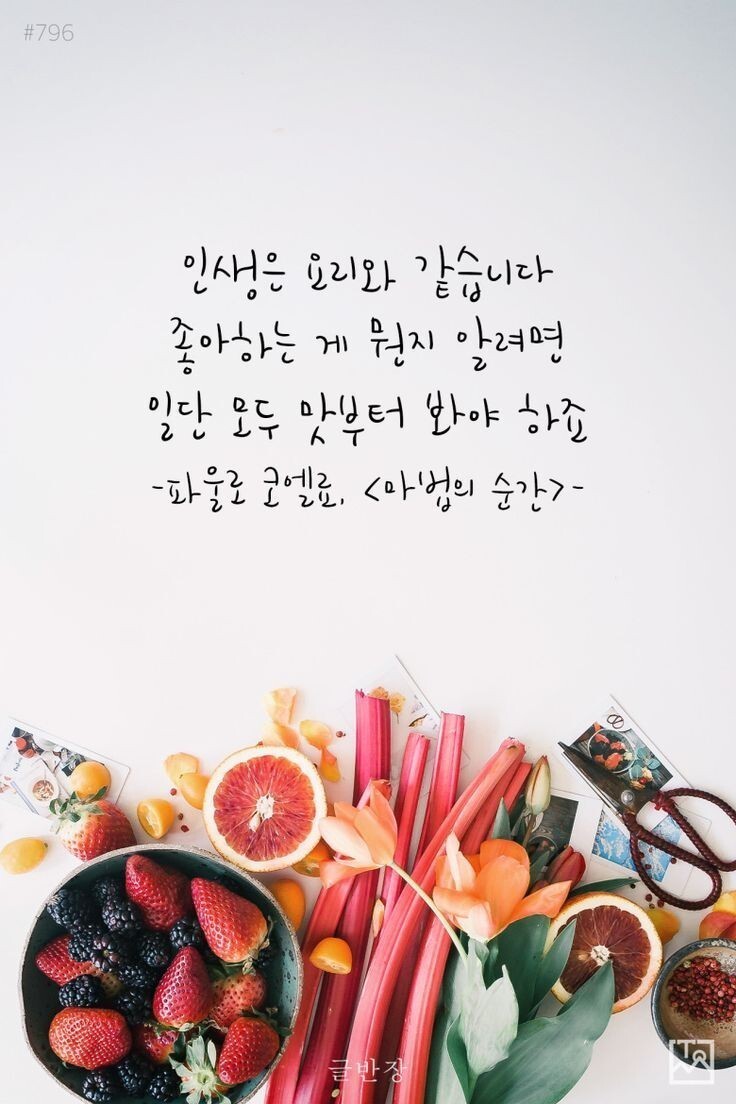 #796
인생은 요리와 같습니다
좋아하는 게 뭔지 알려면
일단 모두 맛부터 봐야 하죠
-파울로 코엘료, <마법의 순간>-
글반장